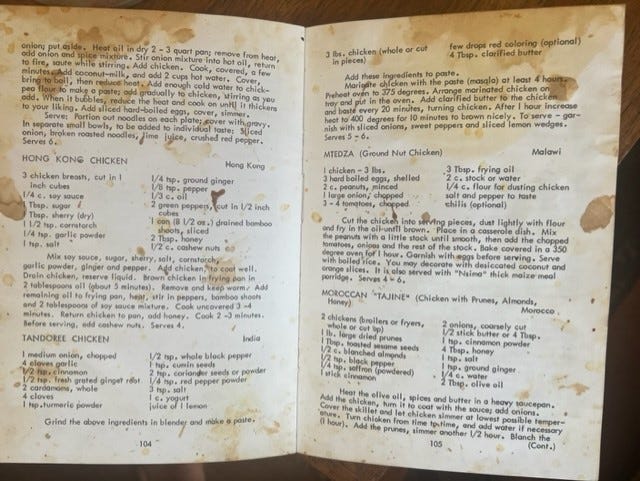 onion; put aside. Heat oil in dry 2 - 3 quart pan; remove from heat,
add onion and spice mixture. Stir onion mixture into hot oil, return
to fire, saute while stirring. Add chicken. Cook, covered, a few
minutes. Add coconut-milk, and add 2 cups hot water. Cover,
bring to boil, then reduce heat. Add enough cold water to chick-
pea flour to make a paste; add gradually to chicken, stirring as you
add. When it bubbles, reduce the heat and cook on until it thickens
to your liking. Add sliced hard-boiled eggs, cover, simmer.
Serve: Portion out noodles on each plate; cover with gravy.
In separate small bowls, to be added to individual taste: Sliced
onion, broken roasted noodles, lime juice, crushed red pepper.
Serves 6.
HONG KONG CHICKEN Hong Kong
3 chicken breasts, cut in 1
inch cubes
1/4 c. soy sauce
1 Tbsp. sugar
1 Tbsp. sherry (dry)
1 1/2 tsp. cornstarch
1/4 tsp. garlic powder
1 tsp. salt
1/4 tsp. ground ginger
1/8 tsp. pepper
1/3 c. oil
2 green peppers, cut in 1/2 inch
cubes
1 can (8 1/2 oz.) drained bamboo
shoots, sliced
2 Tbsp. honey
1/2 c. cashew nuts
Mix soy sauce, sugar, sherry, salt, cornstarch,
garlic powder, ginger and pepper. Add chicken to coat well.
Drain chicken, reserve liquid. Brown chicken in frying pan in
2 tablespoons oil (about 5 minutes). Remove and keep warm. Add
remaining oil to frying pan, heat, stir in peppers, bamboo shoots
and 2 tablespoons of soy sauce mixture. Cook uncovered 3 -4
minutes. Return chicken to pan, add honey. Cook 2 -3 minutes.
Before serving, add cashew nuts. Serves 4.
TANDOREE CHICKEN India
1 medium onion, chopped
4 cloves garlic
1/2 tsp. cinnamon
1/2 tsp. fresh grated ginger root
2 cardamons, whole
4 cloves
1 tsp. turmeric powder
1/2 tsp. whole black pepper
1 tsp. cumin seeds
2 tsp. coriander seeds or powder
1/4 tsp. red pepper powder
3 tsp. salt
1 c. yogurt
juice of 1 lemon
Grind the above ingredients in blender and make a paste.
104
3 lbs. chicken (whole or cut
in pieces)
few drops red coloring (optional)
4 Tbsp. clarified butter
Add these ingredients to paste.
Marinate chicken with the paste (masala) at least 4 hours.
Preheat oven to 375 degrees. Arrange marinated chicken on
tray and put in the oven. Add clarified butter to the chicken
and baste every 20 minutes, turning chicken. After 1 hour increase
heat to 400 degrees for 10 minutes to brown nicely. To serve - gar-
nish with sliced onions, sweet peppers and sliced lemon wedges.
Serves 5 - 6.
MTEDZA (Ground Nut Chicken) Malawi
1 chicken - 3 lbs.
3 hard boiled eggs, shelled
2 c. peanuts, minced
1 large onion, chopped
3 - 4 tomatoes, chopped
3 Tbsp. frying oil
2 c. stock or water
1/4 c. flour for dusting chicken
salt and pepper to taste
chilis (optional)
Cut the chicken into serving pieces, dust lightly with flour
and fry in the oil until brown. Place in a casserole dish. Mix
the peanuts with a little stock until smooth, then add the chopped
tomatoes, onions and the rest of the stock. Bake covered in a 350
degree oven for 1 hour. Garnish with eggs before serving. Serve
with boiled rice. You may decorate with desiccated coconut and
orange slices. It is also served with "Nsima" thick maize meal
porridge. Serves 4 - 6.
MOROCCAN "TAJINE" (Chicken with Prunes, Almonds,
Honey) Morocco
2 chickens (broilers or fryers,
whole or cut up)
1 lb. large dried prunes
1 Tbsp. roasted sesame seeds
1/2 c. blanched almonds
1/2 tsp. black pepper
1/4 tsp. saffron (powdered)
1 stick cinnamon
2 onions, coarsely cut
1/2 stick butter or 4 Tbsp.
1 tsp. cinnamon powder
4 Tbsp. honey
1 tsp. salt
1 tsp. ground ginger
1/4 c. water
2 Tbsp. olive oil
Heat the olive oil, spices and butter in a heavy saucepan.
Add the chicken, turn it to coat with the sauce; add onions.
Cover the skillet and let chicken simmer at lowest possible temper-
ature. Turn chicken from time to time, and add water if necessary
(1 hour). Add the prunes, simmer another 1/2 hour. Blanch the
(Cont.)
105